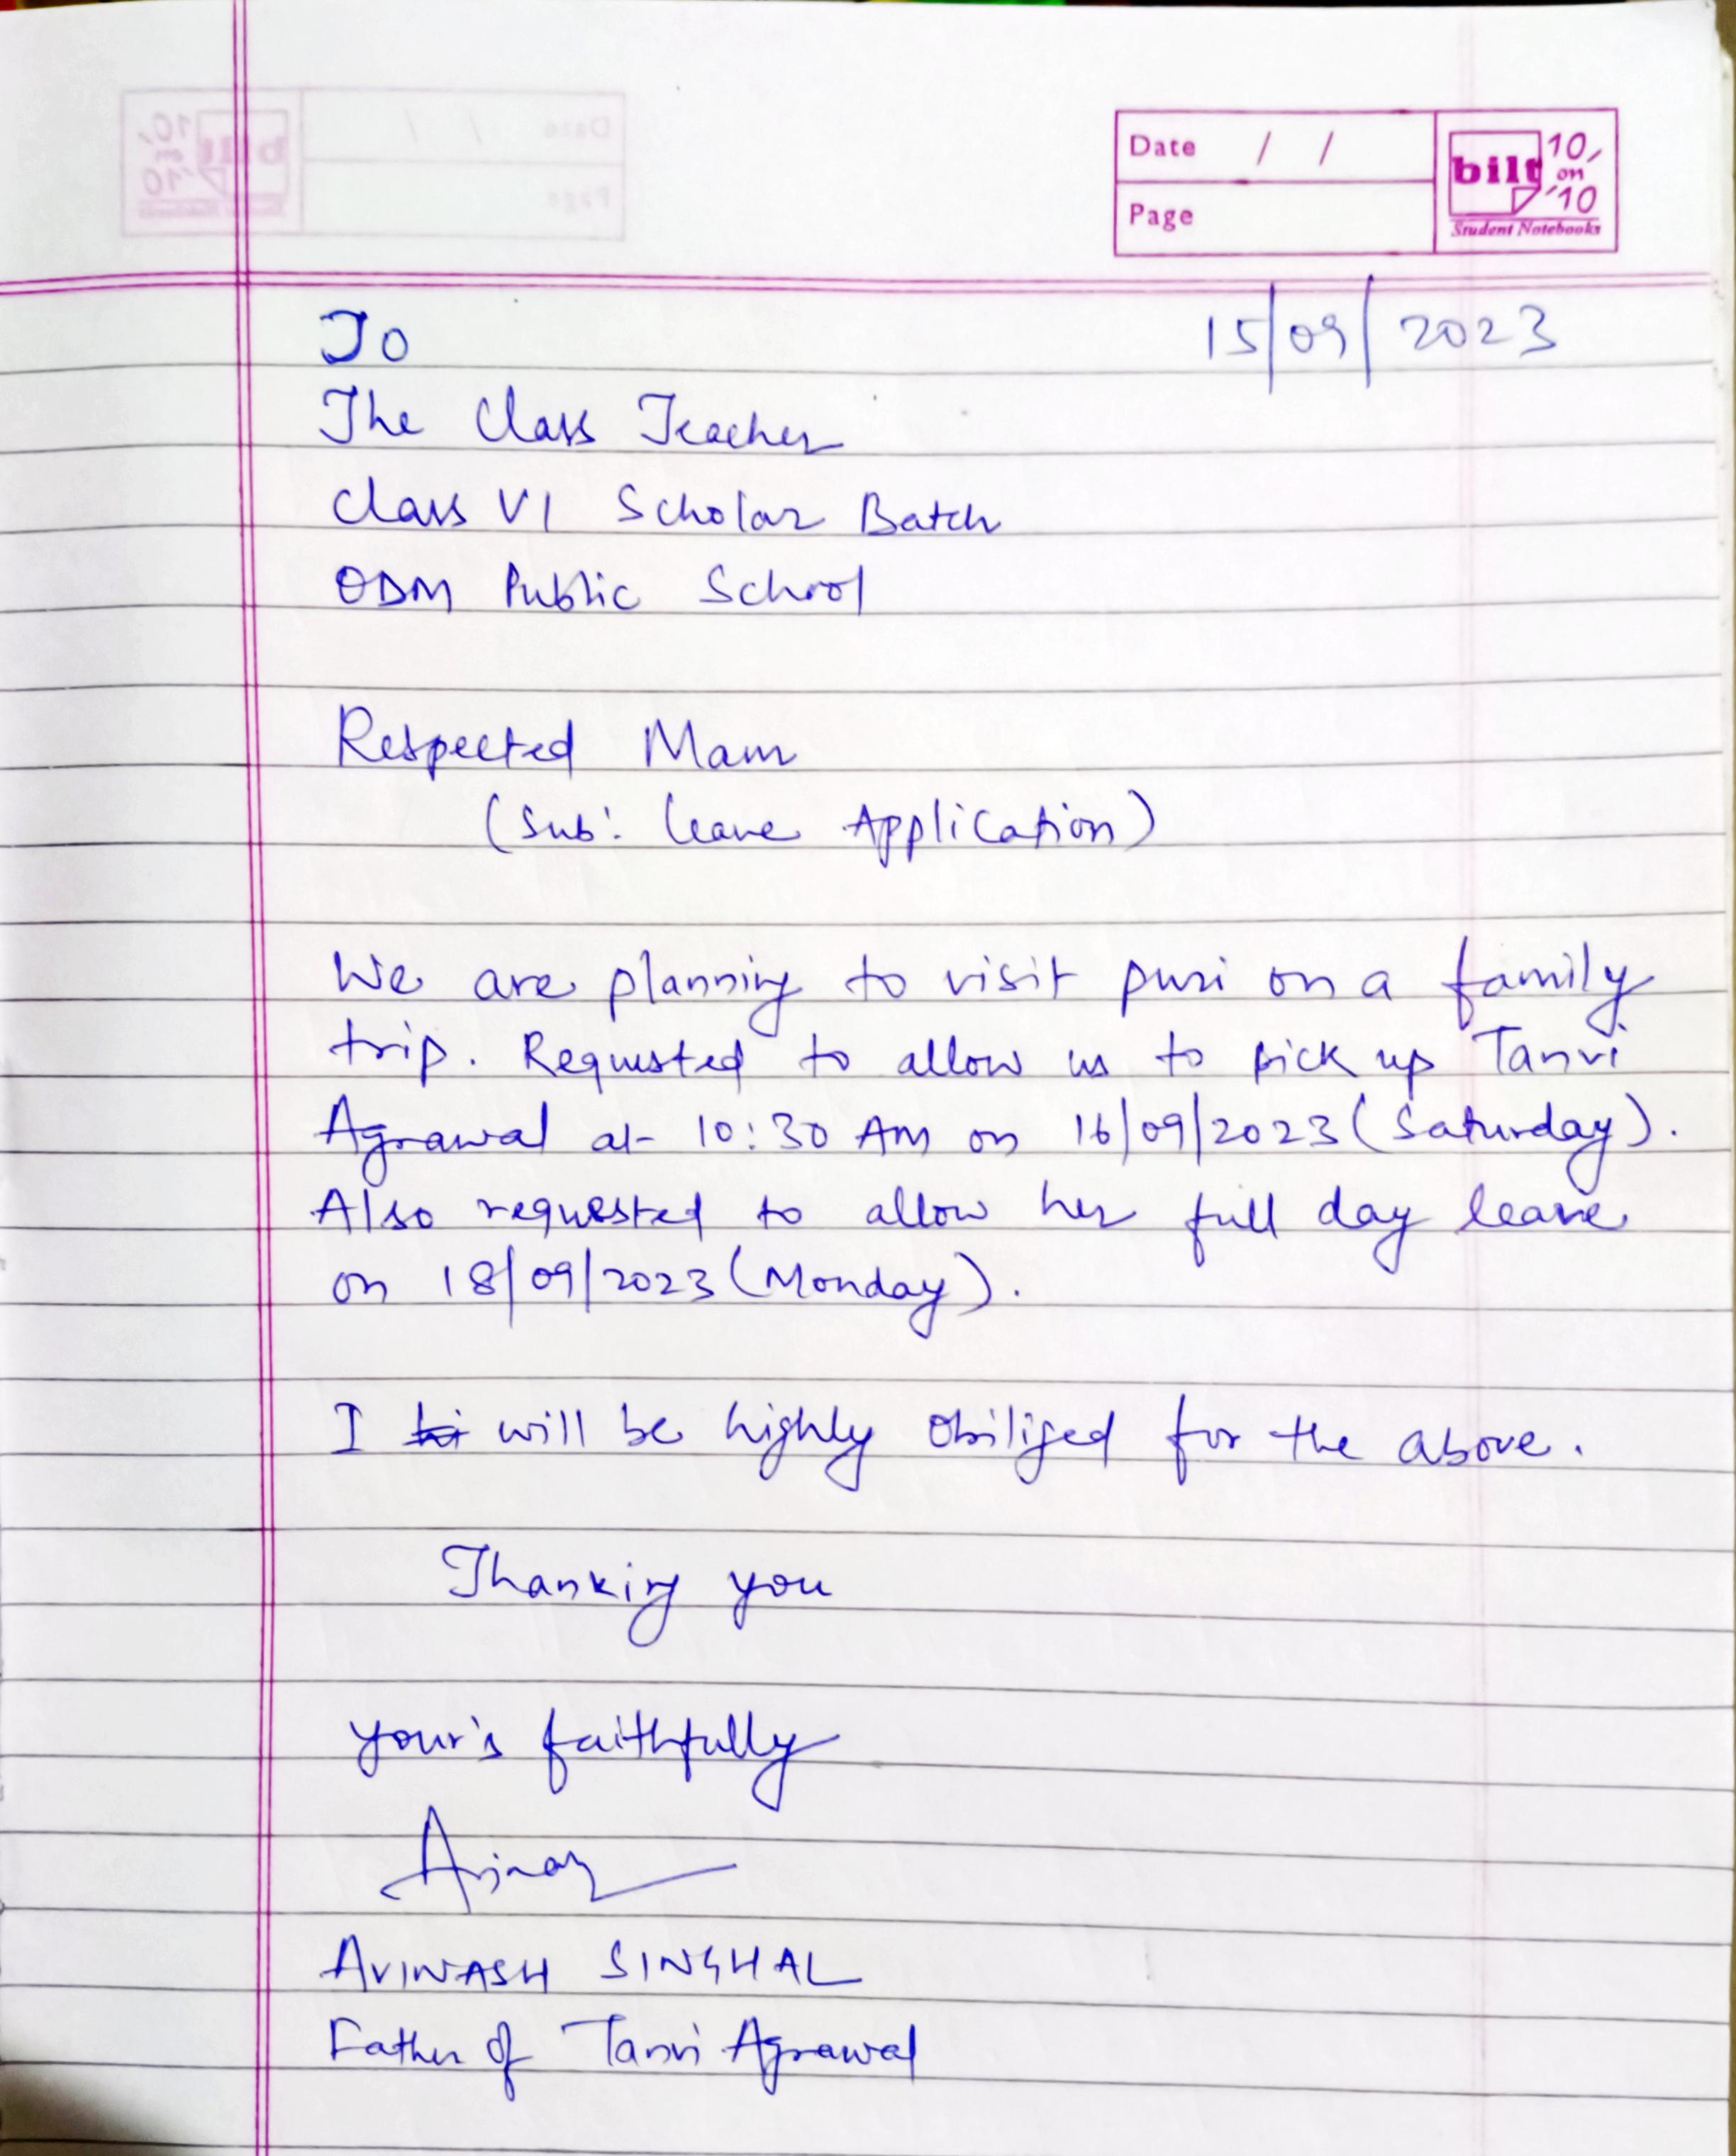 Date / /
Page
bilt 10 on 10
Student Notebooks
To 15/09/2023
The Class Teacher
Class VI Scholar Batch
ODM Public School
Respected Mam
(Sub: Leave Application)
We are planning to visit puri on a family
trip. Requested to allow us to pick up Tanvi
Agrawal at 10:30 AM on 16/09/2023 (Saturday).
Also requested to allow her full day leave
on 18/09/2023 (Monday).
I will be highly obiliged for the above.
Thanking you
your's faithfully
AVINASH SINGHAL
Father of Tanvi Agrawal